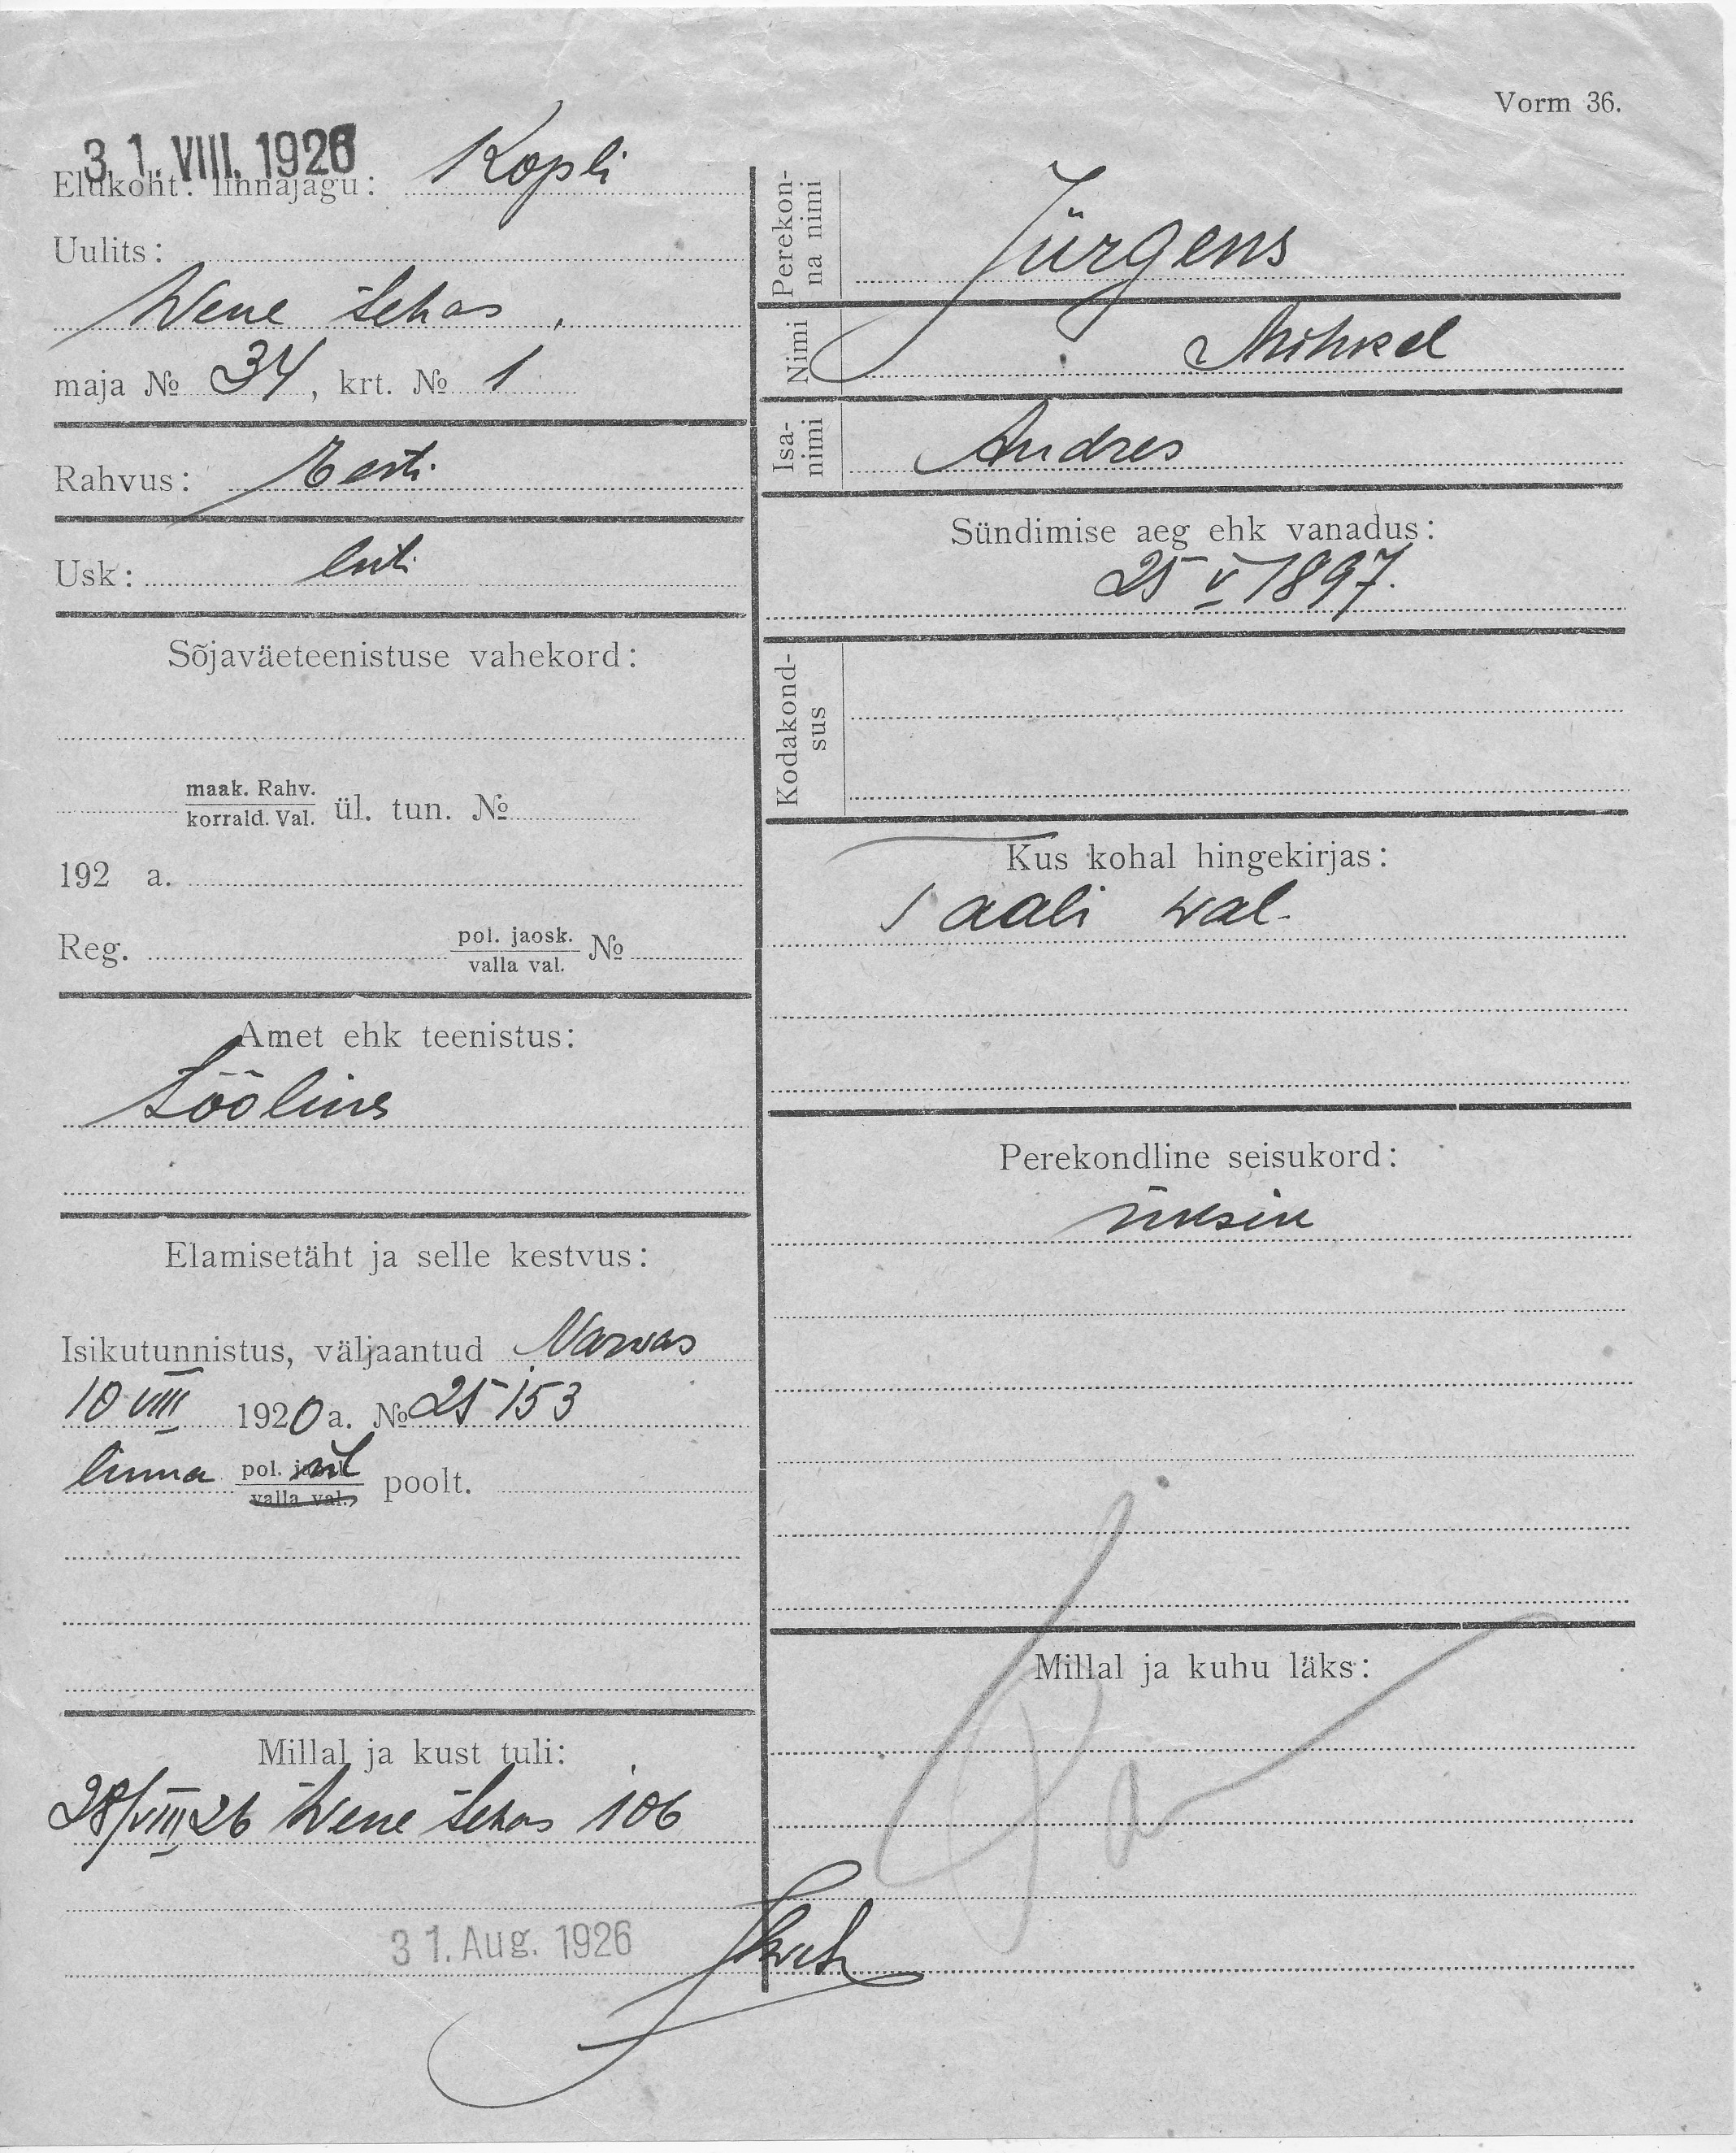 Vorm 36.
31. VIII. 1926
Elukoht: linnajagu: Kopli
Uulits:
Wene tehas,
maja № 34, krt. № 1
Rahvus: Eesti
Usk: luti
Sõjaväeteenistuse vahekord:
maak. Rahv.
korrald. Val. ül. tun. №
192 a.
Reg. pol. jaosk. №
valla val.
Amet ehk teenistus:
Tööline
Elamisetäht ja selle kestvus:
Isikutunnistus, väljaantud Narvas
10 VIII 1920 a. № 25153
linna pol. poolt.
valla val.
Millal ja kust tuli:
28/VIII 26 Wene tehas 106
31. Aug. 1926
Perekon-
na nimi
Jürgens
Nimi
Mihkel
Isa-
nimi
Andres
Sündimise aeg ehk vanadus:
25 V 1897.
Kodakond-
sus
Kus kohal hingekirjas:
Taali wal.
Perekondline seisukord:
üksik
Millal ja kuhu läks: